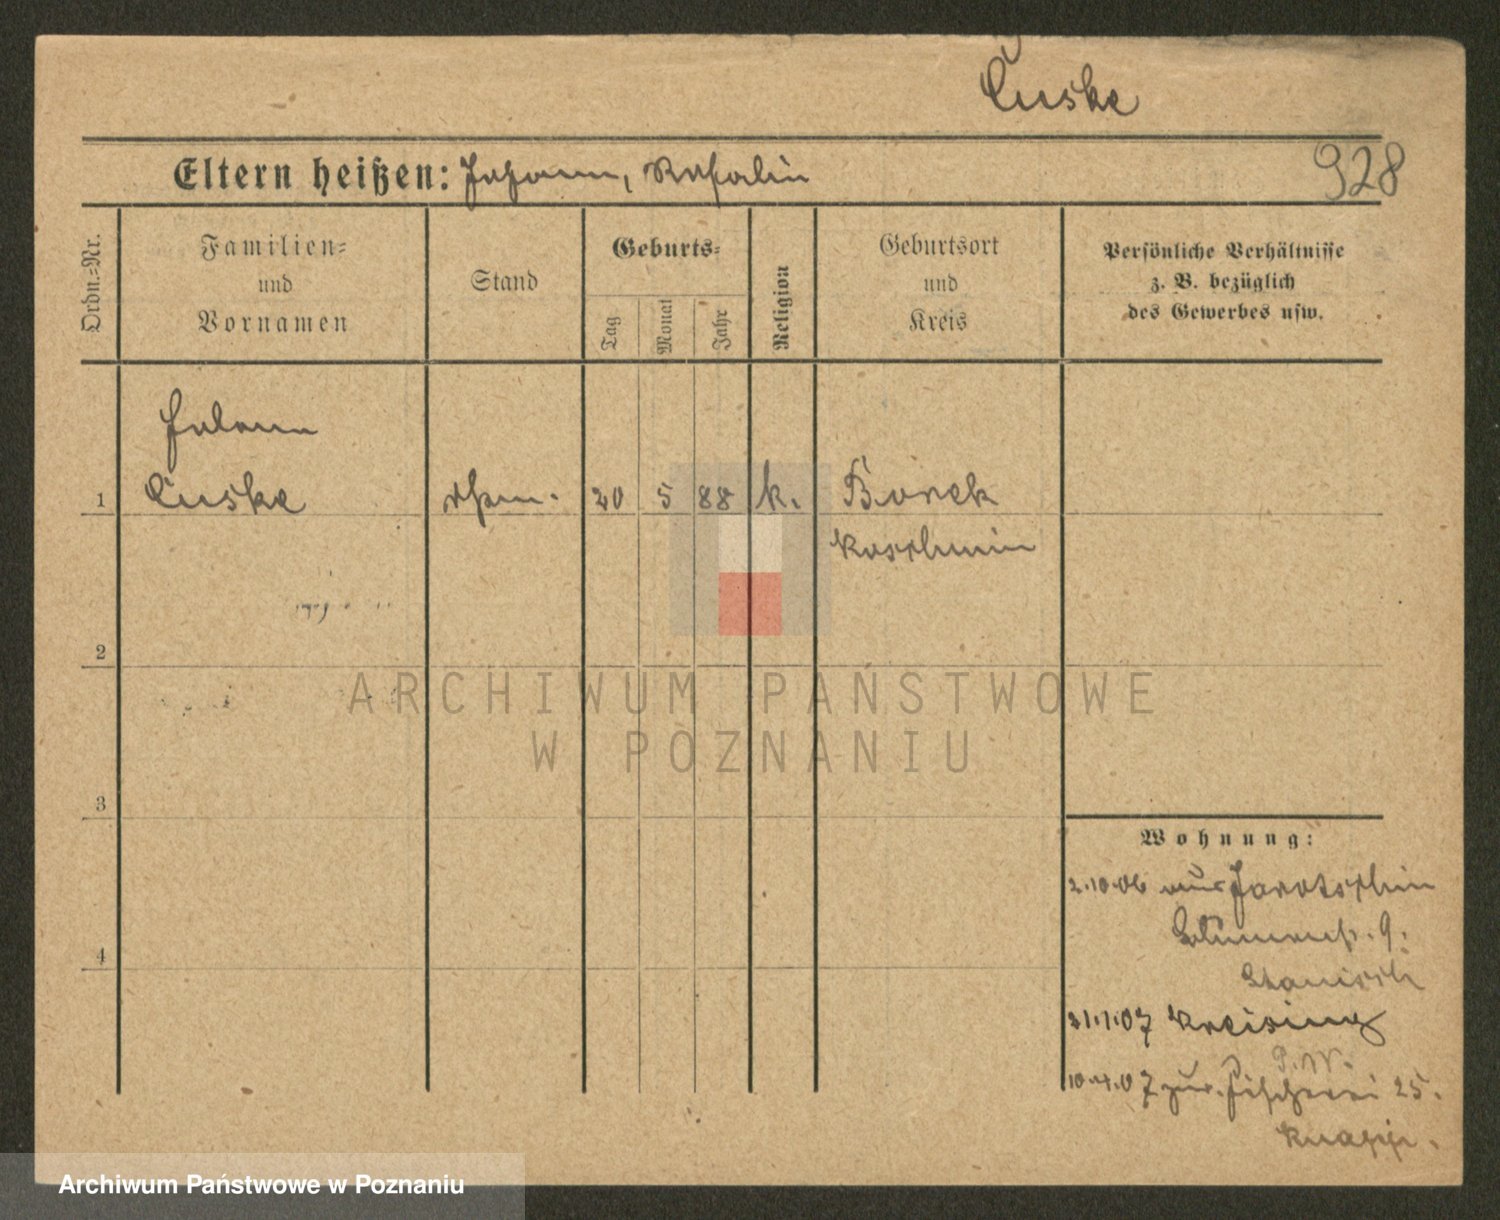 Cuske
Eltern heißen: Johann, Rosalie
928
Ordn.=Nr.
Familien=
und
Vornamen
Stand
Geburts=
Tag
Monat
Jahr
Religion
Geburtsort
und
Kreis
Persönliche Verhältnisse
z. B. bezüglich
des Gewerbes usw.
1 Cuske 20 5 88 k. Borek
Koschmin
2
ARCHIWUM PAŃSTWOWE
W POZNANIU
3
Wohnung:
2.10.06 aus Jarotschin
Blumenstr. 9.
4
21.1.07 Kreising
P.W.
10.4.07 zur. Fischerei 25.
Archiwum Państwowe w Poznaniu